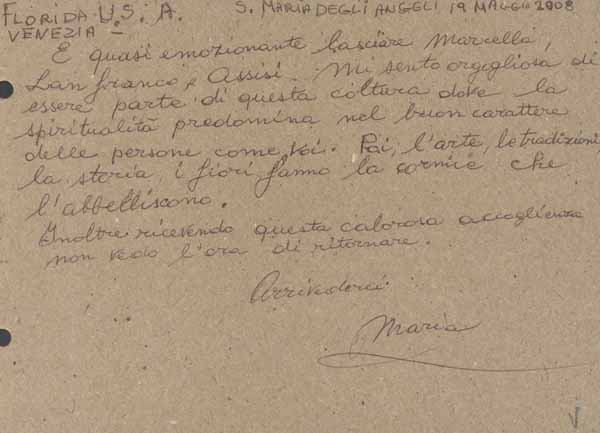 FLORIDA U.S.A. S. MARIA DEGLI ANGELI 19 MAGGIO 2008
VENEZIA
È quasi emozionante lasciare Marcella,
Lanfranco, e Assisi. Mi sento orgogliosa di
essere parte di questa coltura dove la
spiritualità predomina nel buon carattere
delle persone come voi. Poi, l'arte, le tradizioni,
la storia, i fiori fanno la cornice che
l'abbelliscono.
Inoltre ricevendo questa calorosa accoglienza
non vedo l'ora di ritornare.
Arrivederci
Maria